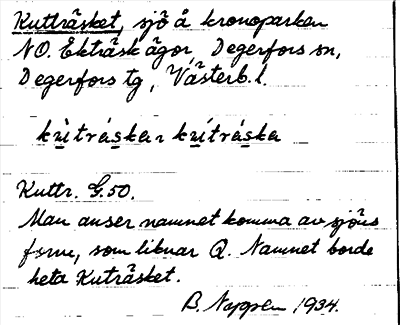 Kutträsket, sjö å kronoparken
NO. Ekträsk ägor, Degerfors sn,
Degerfors tg, Västerb. l.
kùtráska, kùtráska
Kuttr. G.50.
Man anser namnet komma av sjöns
form, som liknar Q. Namnet borde
heta Kuträsket.
B. 1934.